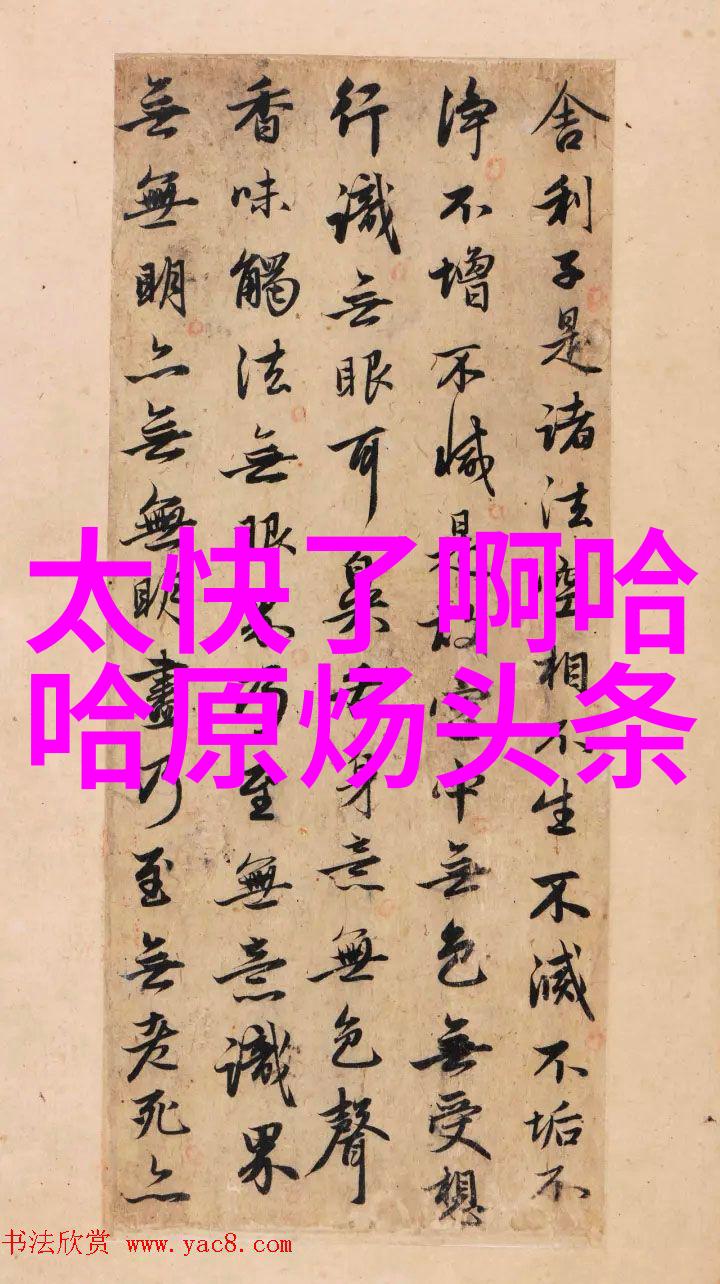 舍利子是諸法空相不生不滅不垢不
淨不增不減是故空中無色無受想
行識無眼耳鼻舌身意無色聲
香味觸法無眼界乃至無意識界
無無明亦無無明盡乃至無老死亦
太快了啊哈
哈原炀头条
书法欣赏 www.yac8.com